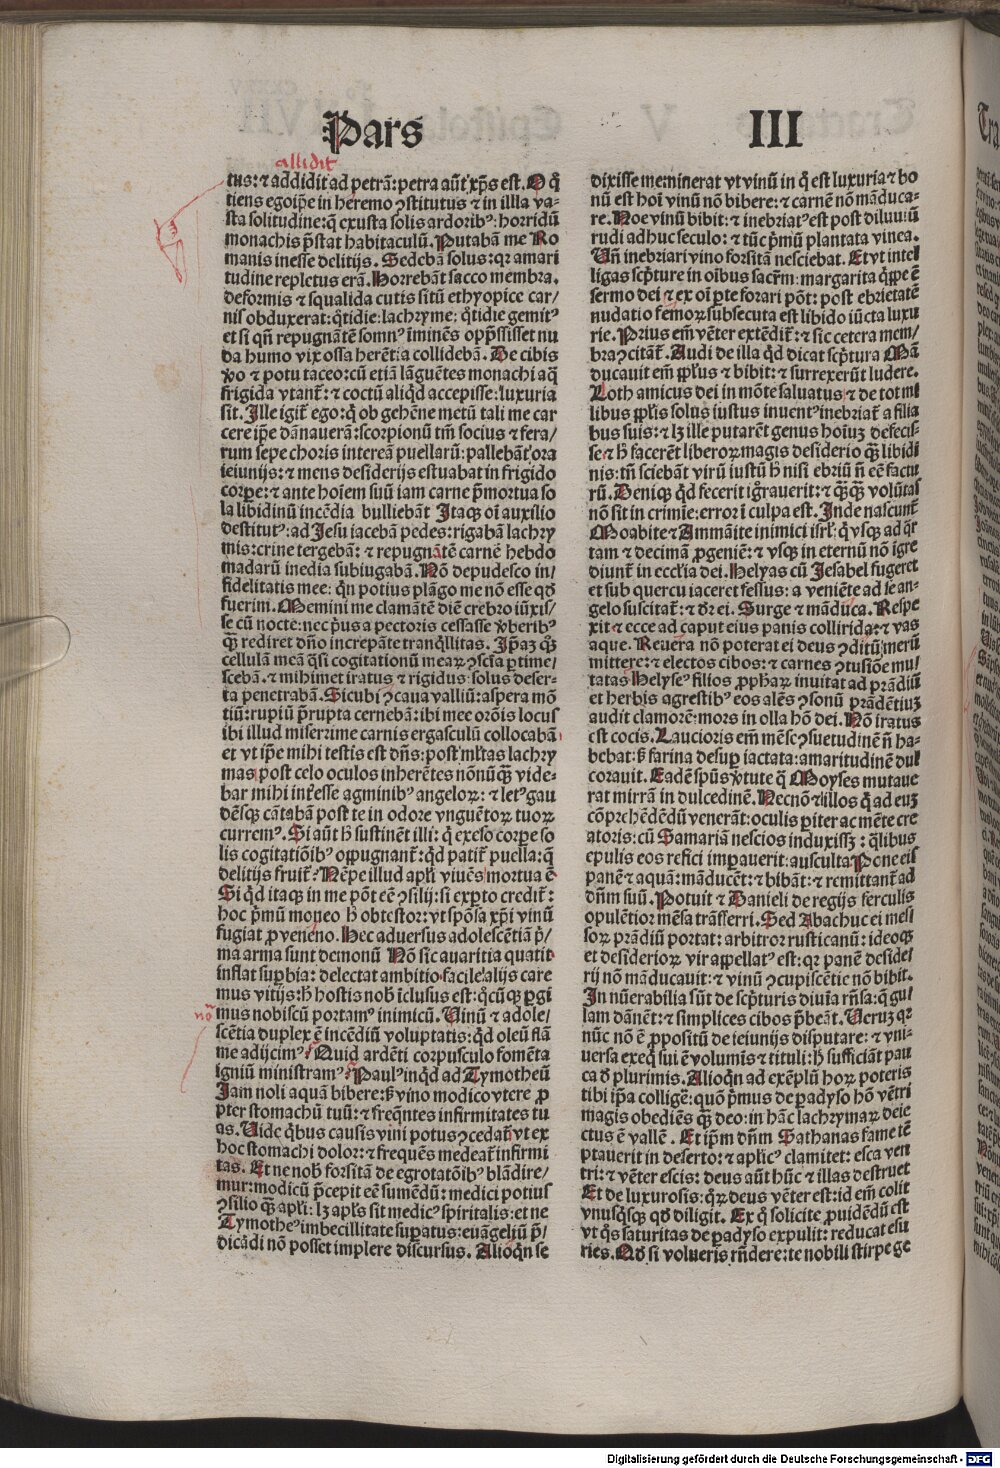 Pars III
allidit
tus: ⁊ addidit ad petrā: petra aūt xp̄s est. O q̄
tiens ego ip̄e in heremo ꝯstitutus ⁊ in illa va-
sta solitudine: q̄ exusta solis ardoribꝰ: horridū
monachis p̄stat habitaculū. Putabā me Ro
manis inesse delitijs. Sedebā solus: qꝛ amari
tudine repletus erā. Horrebāt sacco membra.
deformis ⁊ squalida cutis sitū ethyopice car/
nis obduxerat: q̄tidie: lachryme: q̄tidie gemitꝰ
et si qn̄ repugnātē somnꝰ īminēs opp̄ssisset nu
da humo vix ossa herētia collidebā. De cibis
ꝟo ⁊ potu taceo: cū etiā lāguētes monachi aq̄
frigida vtant᷑: ⁊ coctū aliqd̄ accepisse: luxuria
sit. Ille igit᷑ ego: q̄ ob gehēne metū tali me car
cere ip̄e dānauerā: scorpionū tm̄ socius ⁊ fera/
rum sepe choris intereā puellarū: pallebāt ora
ieiunijs: ⁊ mens desiderijs estuabat in frigido
corꝑe: ⁊ ante hoīem suū iam carne p̄mortua so
la libidinū incēdia bulliebāt Itaqꝫ oī auxilio
destitutꝰ: ad Jesu iacebā pedes: rigabā lachry
mis: crine tergebā: ⁊ repugnātē carnē hebdo
madarū inedia subiugabā. Nō depudesco in/
fidelitatis mee: qn̄ potius plāgo me nō esse qd̄
fuerim. Memini me clamātē diē crebro iūxis/
se cū nocte: nec p̄us a pectoris cessasse ꝟberibꝰ
qꝫ rediret dn̄o increpāte tranq̄llitas. Ip̄aꝫ qꝫ
cellulā meā q̄si cogitationū meaꝝ ꝯsciā ꝑtime/
scebā. ⁊ mihimet iratus ⁊ rigidus: solus deser-
ta penetrabā. Sicubi ꝯcaua valliū: aspera mō
tiū: rupiū p̄rupta cernebā: ibi mee orōnis locus
ibi illud miserrime carnis ergasculū collocabā
et vt ip̄e mihi testis est dn̄s: post ml̄tas lachry
mas post celo oculos inherētes nōnūqꝫ vide-
bar mihi int̄esse agminibꝰ angeloꝝ: ⁊ letꝰ gau
dēsqꝫ cātabā post te in odore vnguētoꝝ tuoꝝ
curremꝰ. Si aūt h̄ sustinēt illi: q̄ exeso corꝑe so
lis cogitatiōibꝰ oppugnant᷑: qd̄ patit᷑ puella: q̄
delitijs fruit᷑? Nēpe illud apl̄i viuēs mortua ē
Si qd̄ itaqꝫ in me pōt eē ꝯsilij: si exꝑto credit᷑:
hoc p̄mū moneo h̄ obtestor: vt spōsa xp̄i vinū
fugiat ꝓ veneno. Hec aduersus adolescētiā p̄/
ma arma sunt demonū Nō sic auaritia quatit
inflat suꝑbia: delectat ambitio facile alijs care
mus vitijs: h̄ hostis nob̄ īclusus est: q̄cūqꝫ ꝑgi
mus nobiscū portamꝰ inimicū. Uinū ⁊ adole/
scētia duplex ē incēdiū voluptatis: qd̄ oleū flā
me adijcimꝰ? Quid ardēti corpusculo fomēta
igniū ministramꝰ? Paulꝰ inqd̄ ad Tymotheū
Jam noli aquā bibere: sꝫ vino modico vtere ꝓ
pter stomachū tuū: ⁊ freq̄ntes infirmitates tu
as. Uide q̄bus causis vini potus ꝯcedat᷑ vt ex
hoc stomachi dolor: ⁊ frequēs medeat᷑ infirmi
tas. Et ne nob̄ forsitā de egrotatōibꝰ blādire/
mur: modicū p̄cepit eē sumēdū: medici potius
ꝯsilio qꝫ apl̄i: lꝫ apl̄s sit medicꝰ spiritalis: et ne
Tymotheꝰ imbecillitate suꝑatus: euāgeliū p̄/
dicādi nō posset implere discursus. Alioqn̄ se
no
dixisse meminerat vt vinū in q̄ est luxuria ⁊ bo
nū est hoī vinū nō bibere: ⁊ carnē nō māduca-
re. Noe vinū bibit: ⁊ inebriatꝰ est post diluuiū
rudi adhuc seculo: ⁊ tūc p̄mū plantata vinea.
Un̄ inebriari vino forsitā nesciebat. Et vt intel
ligas scp̄ture in oībus sacrm̄: margarita q̄ꝑe ē
sermo dei ⁊ ex oī ꝑte forari pōt: post ebrietatē
nudatio femoꝝ subsecuta est libido iūcta luxu
rie. Prius em̄ vēter extēdit᷑: ⁊ sic cetera mem/
bra ꝯcitāt᷑. Audi de illa qd̄ dicat scp̄tura Mā
ducauit em̄ pp̄lus ⁊ bibit: ⁊ surrexerūt ludere.
Loth amicus dei in mōte saluatus ⁊ de tot mi
libus pp̄lis solus iustus inuentꝰ inebriat᷑ a filia
bus suis: ⁊ lꝫ ille putarēt genus hoīuꝫ defecis-
se ⁊ h̄ facerēt liberoꝝ magis desiderio qꝫ libidi
nis: tn̄ sciebāt virū iustū h̄ nisi ebriū n̄ eē factu
rū. Deniqꝫ qd̄ fecerit ignrauerit: ⁊ qꝫqꝫ volūtas
nō sit in crimīe: error ī culpa est. Inde nascunt᷑
Moabite ⁊ Ammāite inimici isrl̄: q̄ vsqꝫ ad q̄r
tam ⁊ decimā ꝓgeniē: ⁊ vsqꝫ in eternū nō igre
diunt᷑ in eccl̄ia dei. Helyas cū Jesabel fugeret
et sub quercu iaceret fessus: a veniēte ad se an-
gelo suscitat᷑: ⁊ dr̄ ei. Surge ⁊ māduca. Respe
xit ⁊ ecce ad caput eius panis collirida: ⁊ vas
aque. Reuera nō poterat ei deus ꝯditū merū
mittere: ⁊ electos cibos: ⁊ carnes ꝯtusiōe mu/
tatas Helyseꝰ filios ꝓphaꝝ inuitat ad prādiū
et herbis agrestibꝰ eos alēs ꝯsonū prādētiuꝫ
audit clamorē: mors in olla hō dei. Nō iratus
est cocis. Laucioris em̄ mēse ꝯsuetudinē n̄ ha-
bebat: sꝫ farina desuꝑ iactata: amaritudinē dul
corauit. Eadē sp̄us ꝟtute q̄ Moyses mutaue
rat mirrā in dulcedinē. Necnō ⁊ illos q̄ ad euꝫ
cōprehēdēdū venerāt: oculis ꝑiter ac mēte cre
atoris: cū Samariā nescios induxissꝫ: q̄libus
epulis eos refici imꝑauerit: ausculta Pone eis
panē ⁊ aquā: māducēt: ⁊ bibāt: ⁊ remittant᷑ ad
dn̄m suū. Potuit ⁊ Danieli de regijs ferculis
opulētior mēsa trāsferri. Sed Abachuc ei mesi
soꝝ prādiū portat: arbitror rusticanū: ideoqꝫ
et desiderioꝝ vir appellatꝰ est: qꝛ panē deside/
rij nō māducauit: ⁊ vinū ꝯcupiscētie nō bibit.
In nūerabilia sūt de scp̄turis diuīa rn̄sa: q̄ gu/
lam dānēt: ⁊ simplices cibos p̄beāt. Ueruꝫ qꝛ
nūc nō ē ꝓpositū de ieiunijs disputare: ⁊ vni-
uersa exeq̄ sui ē volumīs ⁊ tituli: h̄ sufficiāt pau
ca d̄ plurimis. Alioqn̄ ad exēplū hoꝝ poteris
tibi ip̄a colligē: quō p̄mus de paradyso hō vētri
magis obediēs qꝫ deo: in hāc lachrymaꝝ deie
ctus ē vallē. Et ip̄m dn̄m Sathanas fame tē
ptauerit in deserto: ⁊ aplic̄ꝰ clamitet: esca ven
tri: ⁊ vēter escis: deus aūt hūc ⁊ illas destruet
Et de luxurosis: qꝝ deus vēter est: id em̄ colit
vnusq̄sqꝫ qd̄ diligit. Ex q̄ solicite ꝓuidēdū est
vt q̄s saturitas de ꝑadyso expulit: reducat esu
ries. Qd̄ si volueris rn̄dere: te nobili stirpe ge
Digitalisierung gefördert durch die Deutsche Forschungsgemeinschaft - DFG